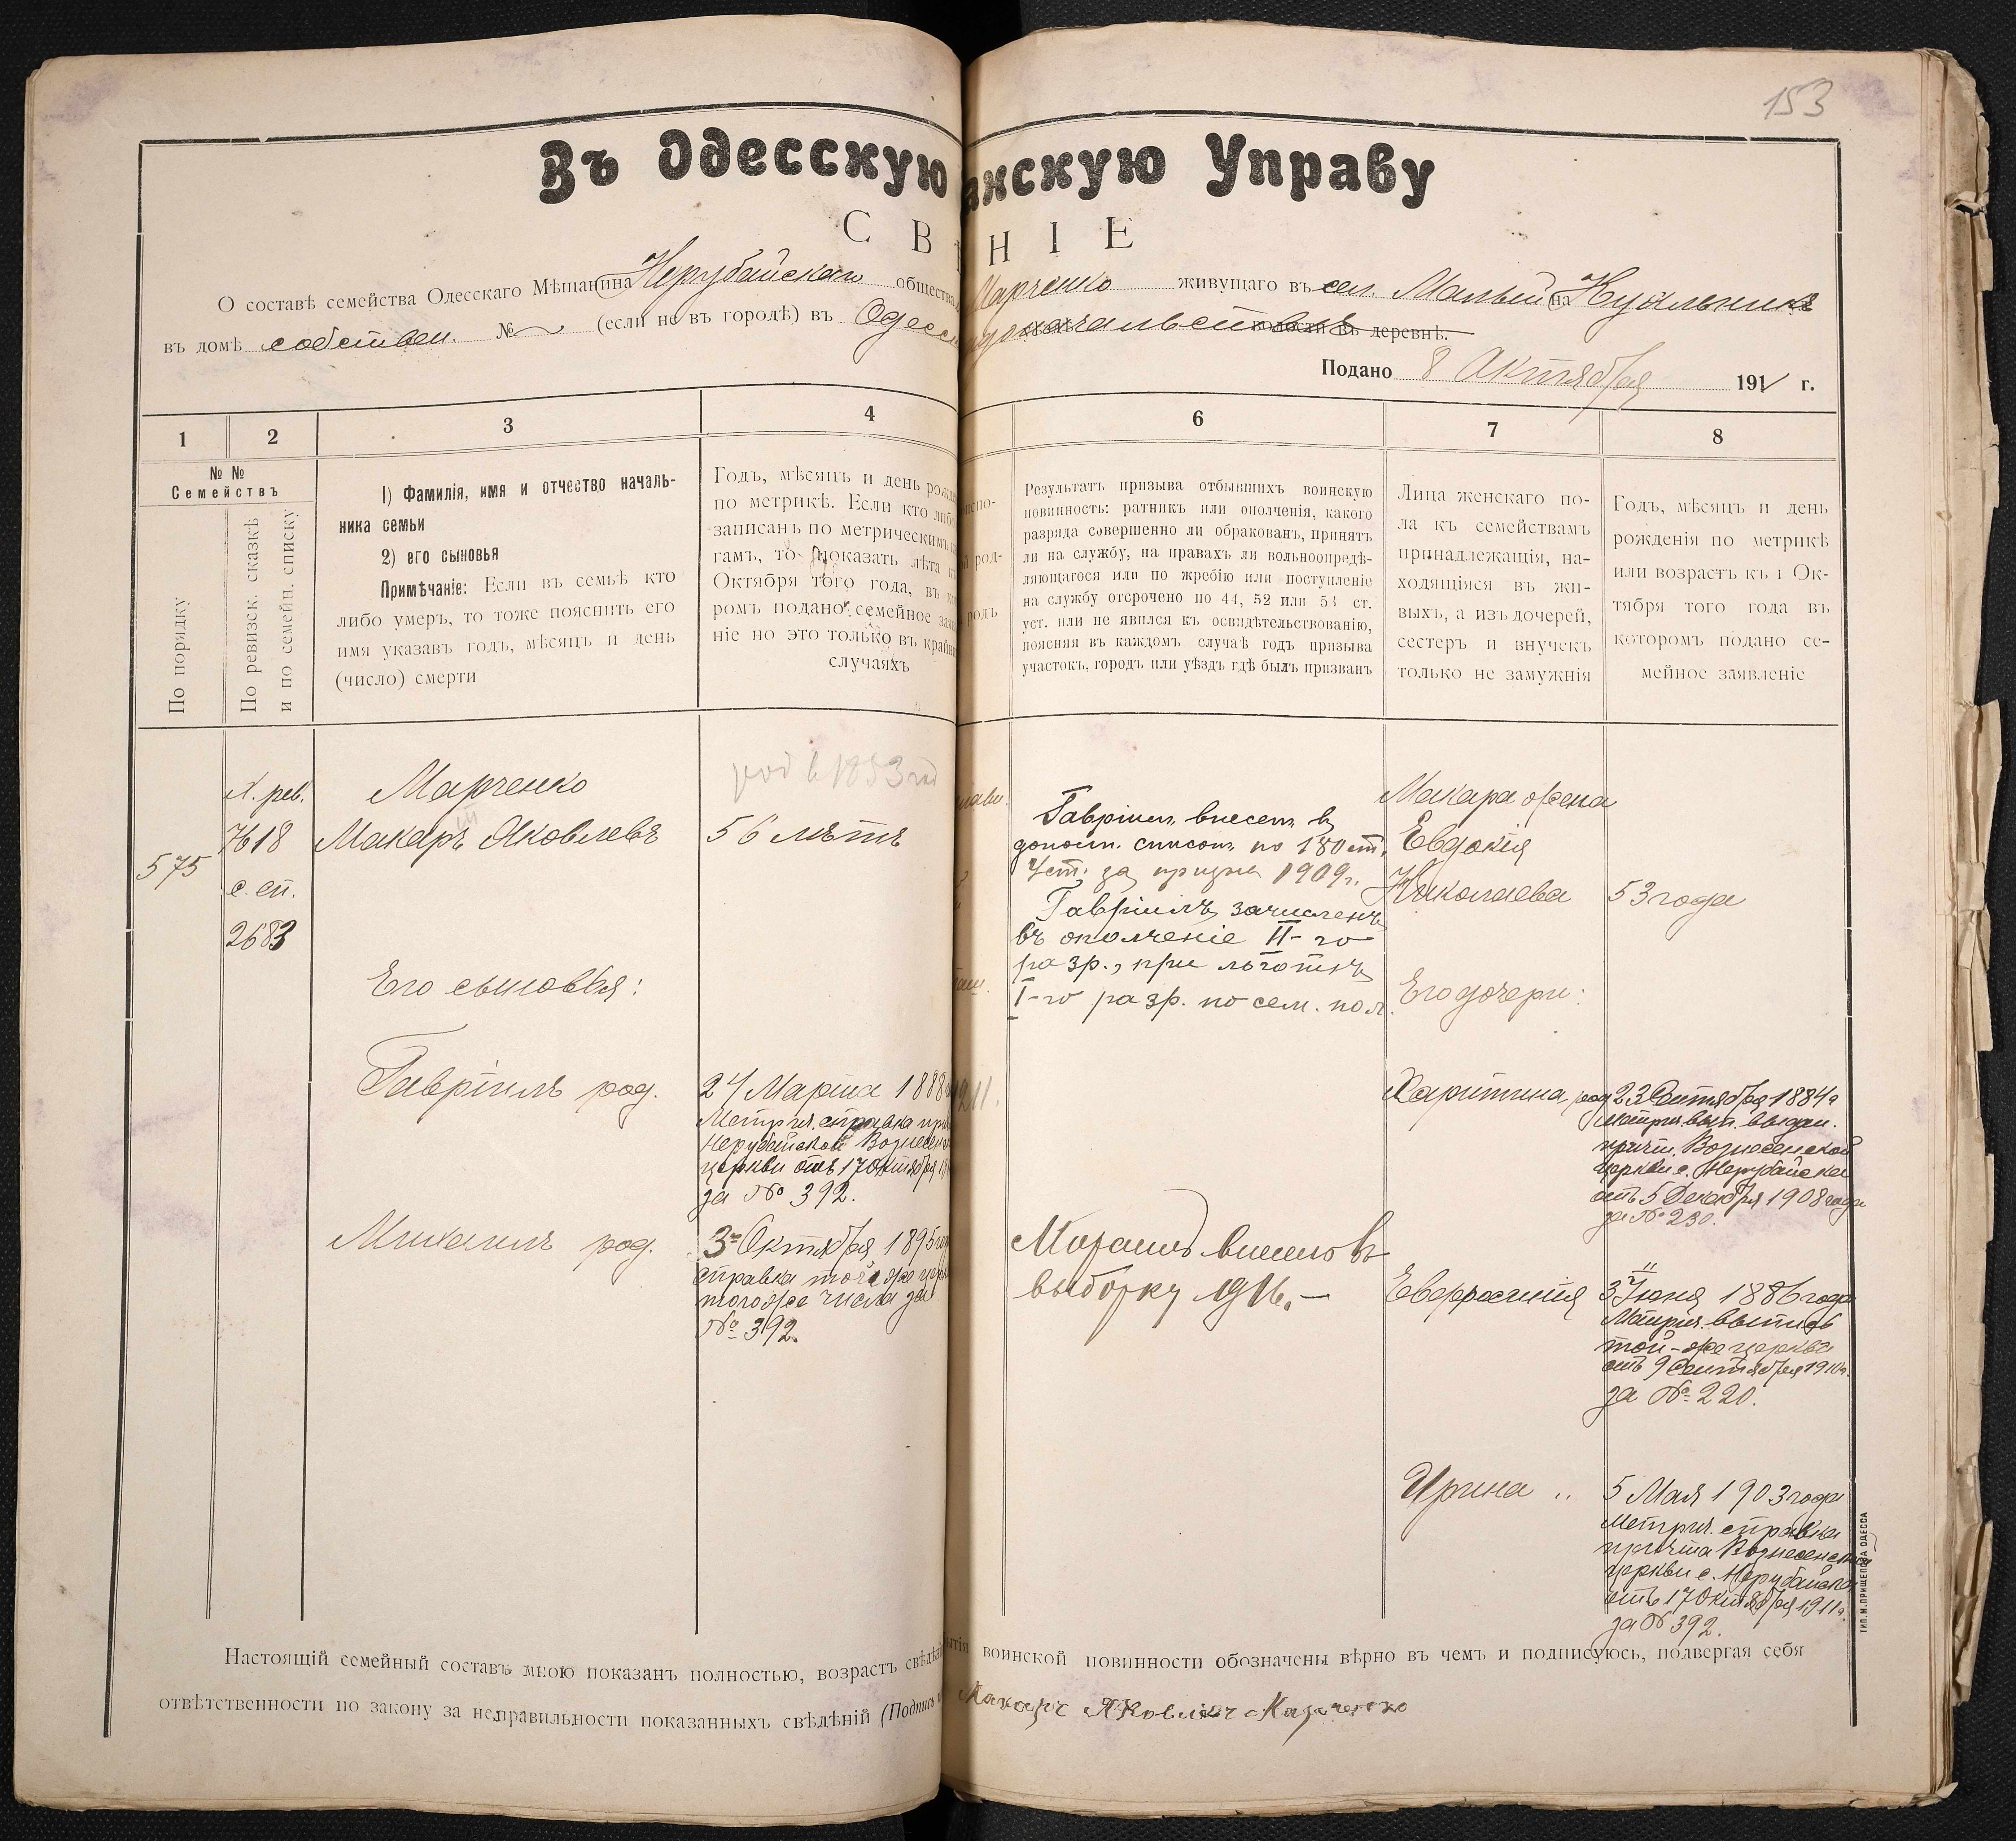 153
Въ Одесскую
анскую Управу
С В
Н І Е
О составѣ семейства Одесскаго Мѣщанина Нерубайскаго общества
Марченко живущаго въ сел. Малый на Куяльникъ
въ домѣ собствен. № (если не въ городѣ) въ Одесс
адоначальствѣ волости въ деревнѣ.
Подано 8 Октября 1911 г.
1
2
3
4
6
7
8
№ №
Семействъ
По порядку
По ревизск. сказкѣ
и по семейн. списку
1) Фамилія, имя и отчество началь-
ника семьи
2) его сыновья
Примѣчаніе: Если въ семьѣ кто
либо умеръ, то тоже пояснить его
имя указавъ годъ, мѣсяцъ и день
(число) смерти
Годъ, мѣсяцъ и день рожд
по метрикѣ. Если кто либо
записанъ по метрическимъ к
гамъ, то показать лѣта к
Октября того года, въ ко
ромъ подано семейное зая
ніе но это только въ край
случаяхъ
Результатъ призыва отбывшихъ воинскую
повинность: ратникъ или ополченія, какого
разряда совершенно ли обракованъ, принятъ
ли на службу, на правахъ ли вольноопредѣ-
ляющагося или по жребію или поступленіе
на службу отсрочено по 44, 52 или 53 ст.
уст. или не явился къ освидѣтельствованію,
поясняя въ каждомъ случаѣ годъ призыва
участокъ, городъ или уѣздъ гдѣ былъ призванъ
Лица женскаго по-
ла къ семействамъ
принадлежащія, на-
ходящіяся въ жи-
выхъ, а изъ дочерей,
сестеръ и внучекъ
только не замужнія
Годъ, мѣсяцъ и день
рожденія по метрикѣ
или возрастъ къ 1 Ок-
тября того года въ
которомъ подано се-
мейное заявленіе
575
X. рев.
№ 18
с. сп.
2683
Марченко
Макаръ Яковлевъ
род в 1853 год
56 лѣтъ
Его сыновья:
Гавріилъ род.
24 Марта 1888
Метрич. справка при
Нерубайской Вознесен
церкви отъ 17 Октября 1
за № 392.
Михаилъ род.
3го Октября 1895 го
справка той же церк
того же числа за
№ 392.
1911.
Гавріилъ внесен в
дополн. список по 180 ст.
Уст. за призыв 1909 г.
Гавріилъ зачисленъ
въ ополченіе II-го
разр., при льготѣ
I-го разр. по сем. пол.
Михаилъ внесен въ
выборку 1916.–
Макара жена
Евдокія
Николаева
53 года
Его дочери:
Харитина род
23 Сентября 1884 г
метрич. вып. выдан.
причт. Вознесенской
церкви с. Нерубайска
отъ 5 Декабря 1908 года
за № 230.
Евфросинія "
3 Іюня 1886 года
Метрич. выпись
той-же церкви
отъ 9 Сентября 1910 г.
за № 220.
Ирина "
5 Мая 1903 года
Метрич. справка
причта Вознесенской
церкви с. Нерубайска
отъ 17 Октября 1911 г.
за № 392.
Настоящій семейный составъ мною показанъ полностью, возрастъ свѣдѣн
воинской повинности обозначены вѣрно въ чемъ и подписуюсь, подвергая себя
отвѣтственности по закону за неправильности показанныхъ свѣдѣній (Подпись
Макаръ Яковлівъ Марченко
ТИП. М. ПРИЩЕПОВА ОДЕССА